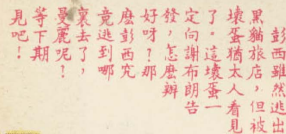 彭西雖然逃出
黑貓旅店,但被
壞蛋猶太人看見
了。這壞蛋一
定向謝布朗告
發,怎麼辦
好呀?那
麼彭西究
竟逃到哪
裏去了,
曼麗呢!
等下期
見吧!